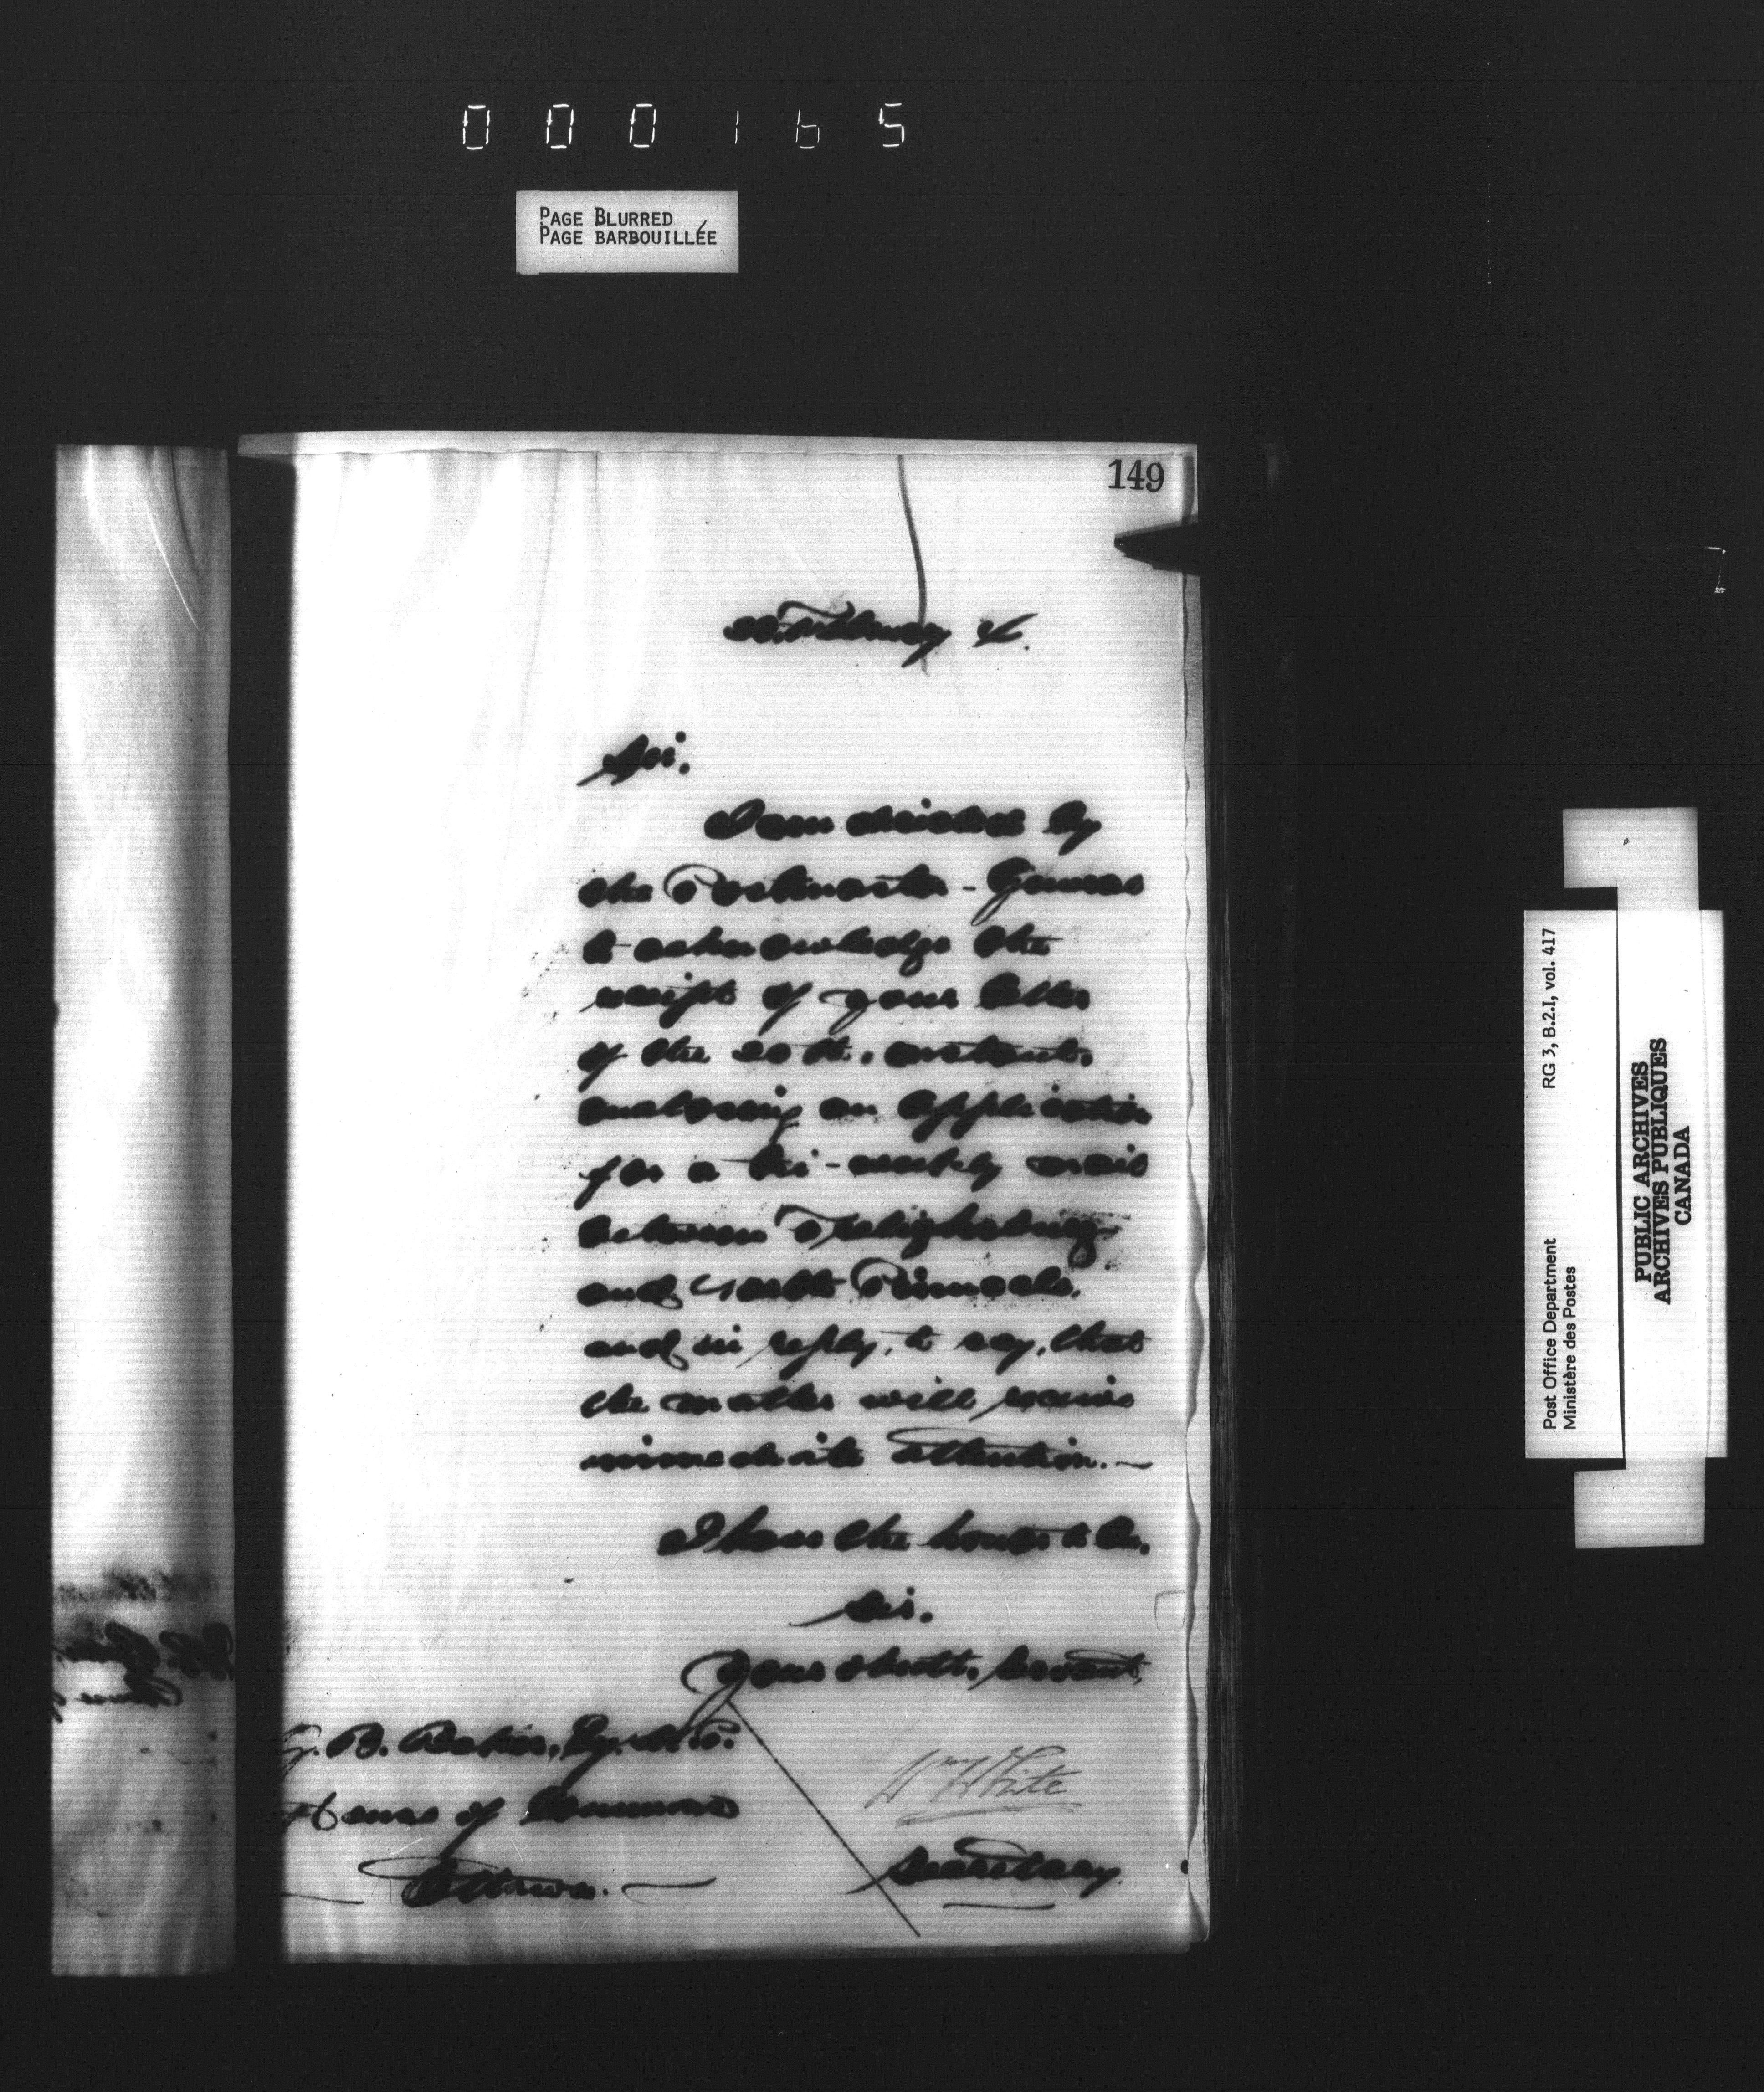 000165
PAGE BLURRED
PAGE BARBOUILLÉE
149
February
Sir.
I am directed by
the Postmaster-General
to acknowledge the
receipt of your letter
of the 20th. instant.
enclosing an application
for a tri-weekly mail
between Frelighsburg
and North Pinnacle,
and in reply, to say, that
the matter will receive
immediate attention.
I have the honor to be,
Sir.
Your obedt. servant,
G. B. Baker, Esq. M.P.
House of Commons
Ottawa.
Wm White
Secretary.
Post Office Department RG 3, B.2.I, vol. 417
Ministère des Postes
PUBLIC ARCHIVES
ARCHIVES PUBLIQUES
CANADA